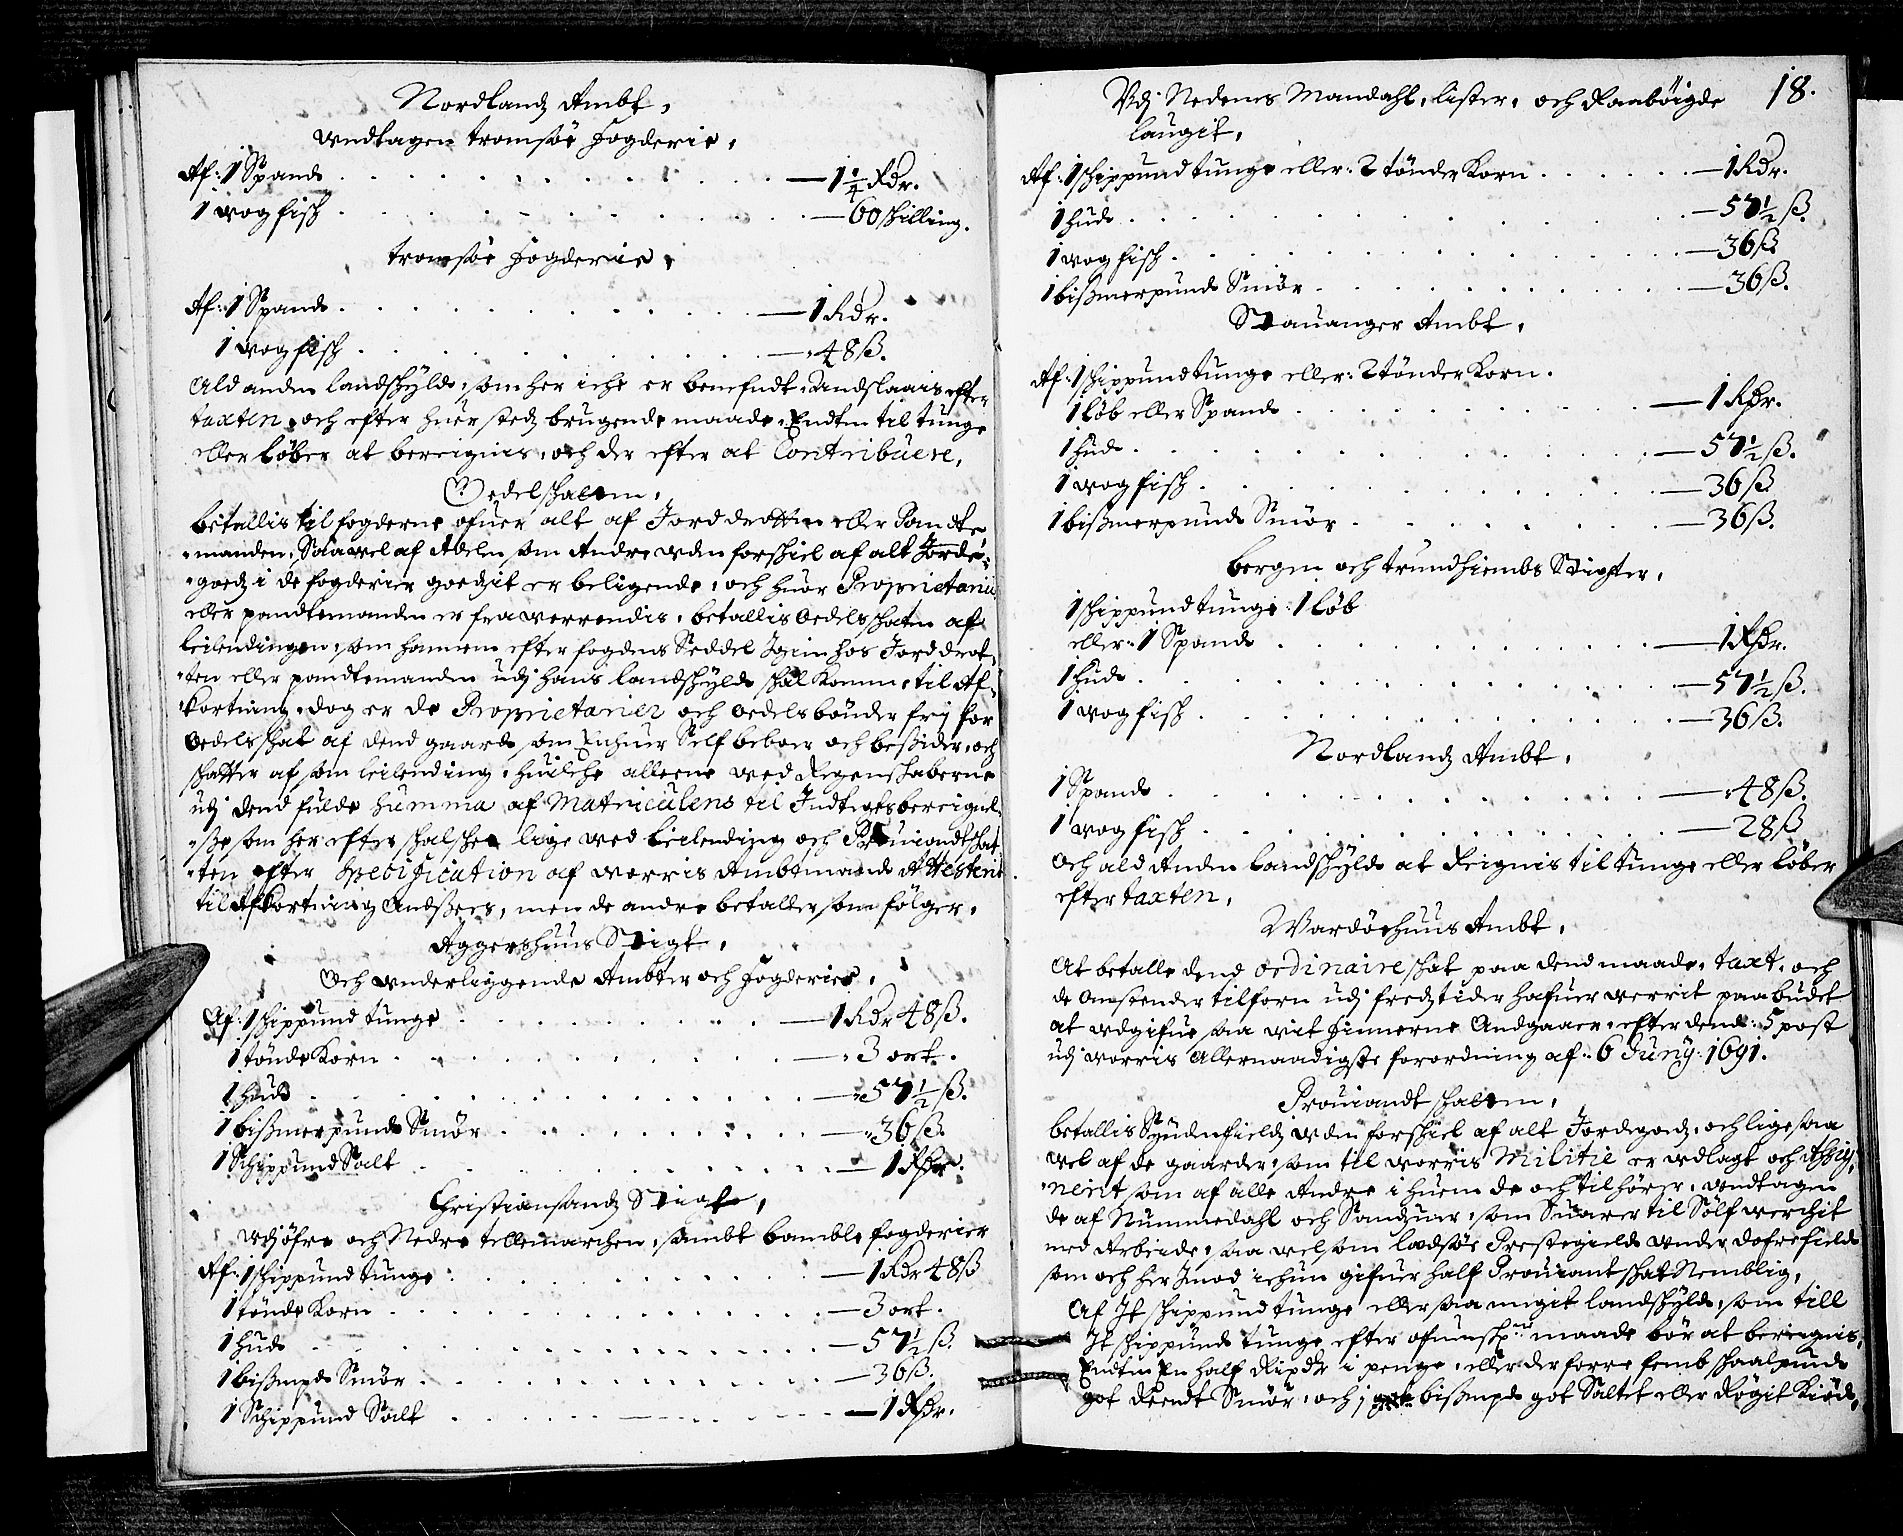 Nordlands Ambt,
vndtagen tromsöe fogderie,
Af: 1 Spand . . . — 1 1/4 Rdr.
1 wog fisk . . . — 60 skilling.
tromsöe fogderie,
Af: 1 Spand . . . — 1 Rdr.
1 wog fisk . . . — 48 ß.
Ald anden landskyld, som her iche er benefndt, Andslaais efter
taxten, och efter huer steds brugende maade, Endten til tunge
eller Løber at bereignis, och der efter at Contribuere,
Oedelskatten,
betallis til fogderne ofuer alt af Jorddrotten eller Pandte-
manden, Saawel af Adelen som Andre vden forskiel af alt Jorde-
goeds i de fogderier goedsit er beligende, och huor Proprietarii
eller pandtemanden er fraverrendis, betallis Oedelsskatten af
Leilendingen, som hannem efter fogdens Seddel Igien hos Jorddrot-
ten eller pandtemanden udj hans landskyld skal komme til Af-
kortning, dog er de Proprietarier och oedelsbønder frj for
Oedelsskat af dend gaard, som Enhuer Self beboer och besider, och
skatter af som leilending, huilche alleene wed Regenskaberne
udj dend fulde Summa af Matriculens til Indtegtsbereignel-
se som her efter skal skee lige wed Leilending och Prouiandtskat-
ten efter Specification af worris Ambtmands Attesterit
til Afkortning Andføres, men de andre betaller som følger,
Aggershuus Stigt,
Och vnderliggende Ambter och fogderier,
Af: 1 skippund tunge . . . — 1 Rdr 48 ß.
1 tønde Korn . . . — 3 ort.
1 hud . . . — 57 1/2 ß.
1 bißmerpund Smør . . . — 36 ß.
1 Schippund Salt . . . — 1 Rdr.
Christiansands Stigt,
vdj öfre och Nedre tellemarchen, sambt bamble fogderier
Af: 1 skippund tunge . . . — 1 Rdr 48 ß
1 tønde Korn . . . — 3 ort.
1 hud . . . — 57 1/2 ß.
1 bißmpd Smør . . . — 36 ß.
1 Schippund Salt . . . — 1 Rdr.
18.
Vdj Nedenes Mandahl, lister, och Raabøigde
laugit,
Af: 1 skippund tunge eller: 2 tønder Korn . . . — 1 Rdr.
1 hud . . . — 57 1/2 ß.
1 wog fisk . . . — 36 ß
1 bißmerpund Smør . . . — 36 ß.
Stauanger Ambt,
Af: 1 skippund tunge eller: 2 tønder Korn.
1 Løb eller Spand . . . — 1 Rdr.
1 hud . . . — 57 1/2 ß.
1 wog fisk . . . — 36 ß.
1 bißmerpund Smør . . . — 36 ß.
bergen och trundhiembs Stigter,
1 skippund tunge: 1 Løb
eller: 1 Spand . . . — 1 Rdr.
1 hud . . . — 57 1/2 ß.
1 wog fisk . . . — 36 ß.
Nordlands Ambt,
1 Spand . . . — 48 ß.
1 wog fisk . . . — 28 ß
Och ald Anden landskyld at Reignis til tunge eller Løber
efter taxten,
Wardöehuus Ambt,
At betalle dend ordinaire skat paa dend maade, taxt, och
de tilforn udj fredstider hafuer werrit paabudet
at vdgifue, saa wit finnerne Andgaaer, efter dend: 5 post
udj worris Allernaadigste forordning af: 6 Juny: 1691.
Prouiandt skatten,
betallis Syndenfields vden forskiel af alt Jordegods, och lige saa
wel af de gaarder, som til worris Militie er vdlagt och Assig-
nerit, som af alle Andre i huem de och tilhører, vndtagen
de af Nummedahl och Sandsuer, som Suarer til Sølfwerchit
med Arbeide, saa vel som lædsøe Prestegield vnder dofrefield
som och her Imod ichun gifuer half Prouiant skat Nemblig,
Af It skippund tunge eller saa migit landskyld, som till
It skippund tunge efter ofuenschr: maade bør at bereignis,
Endten En half Rixdr i penge, eller der forre femb skaalpund
got Reendt Smør, och 1 bißmpd got Saltet eller Røgit Kiød,